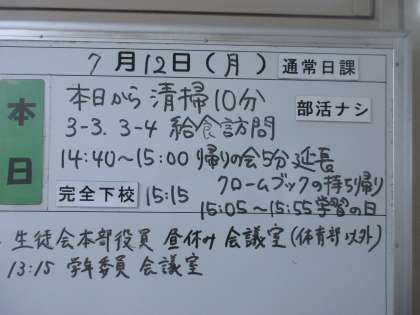 7月12日(月) 通常日課
本日
本日から清掃10分
部活ナシ
3-3. 3-4 給食訪問
14:40～15:00 帰りの会5分延長
クロームブックの持ち帰り
完全下校 15:15
15:05～15:55 学習の日
生徒会本部役員 昼休み 会議室(体育部以外)
13:15 学年委員 会議室